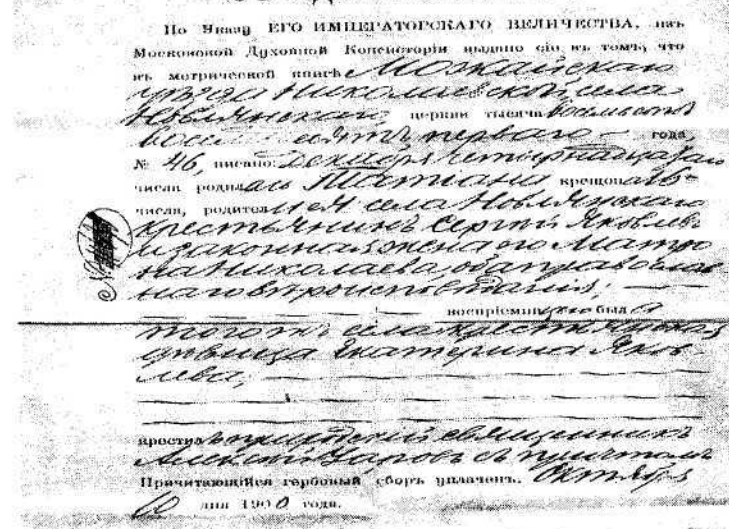 По Указу ЕГО ИМПЕРАТОРСКАГО ВЕЛИЧЕСТВА, изъ
Московской Духовной Консисторіи выдано сіе въ томъ, что
въ метрической книгѣ Можайскаго
уѣзда Николаевской села
Новлянскаго церкви тысяча восемьсотъ
восемьдесятъ перваго года
№ 46, писано: Декабря четырнадцатаго
числа родилась Татіана крещена 15
числа, родители ея села Новлянскаго
крестьянинъ Сергій Яковлевъ
и законная жена его Матро
на Николаева, оба православ
наго вѣроисповѣданія;
воспріемницею была
тогожъ села крестьянская
дѣвица Екатерина Яков
лева,
крестилъ приходскій священникъ
Алексѣй съ причтомъ
Причитающійся гербовый сборъ уплаченъ. Октября
дня 1900 года.